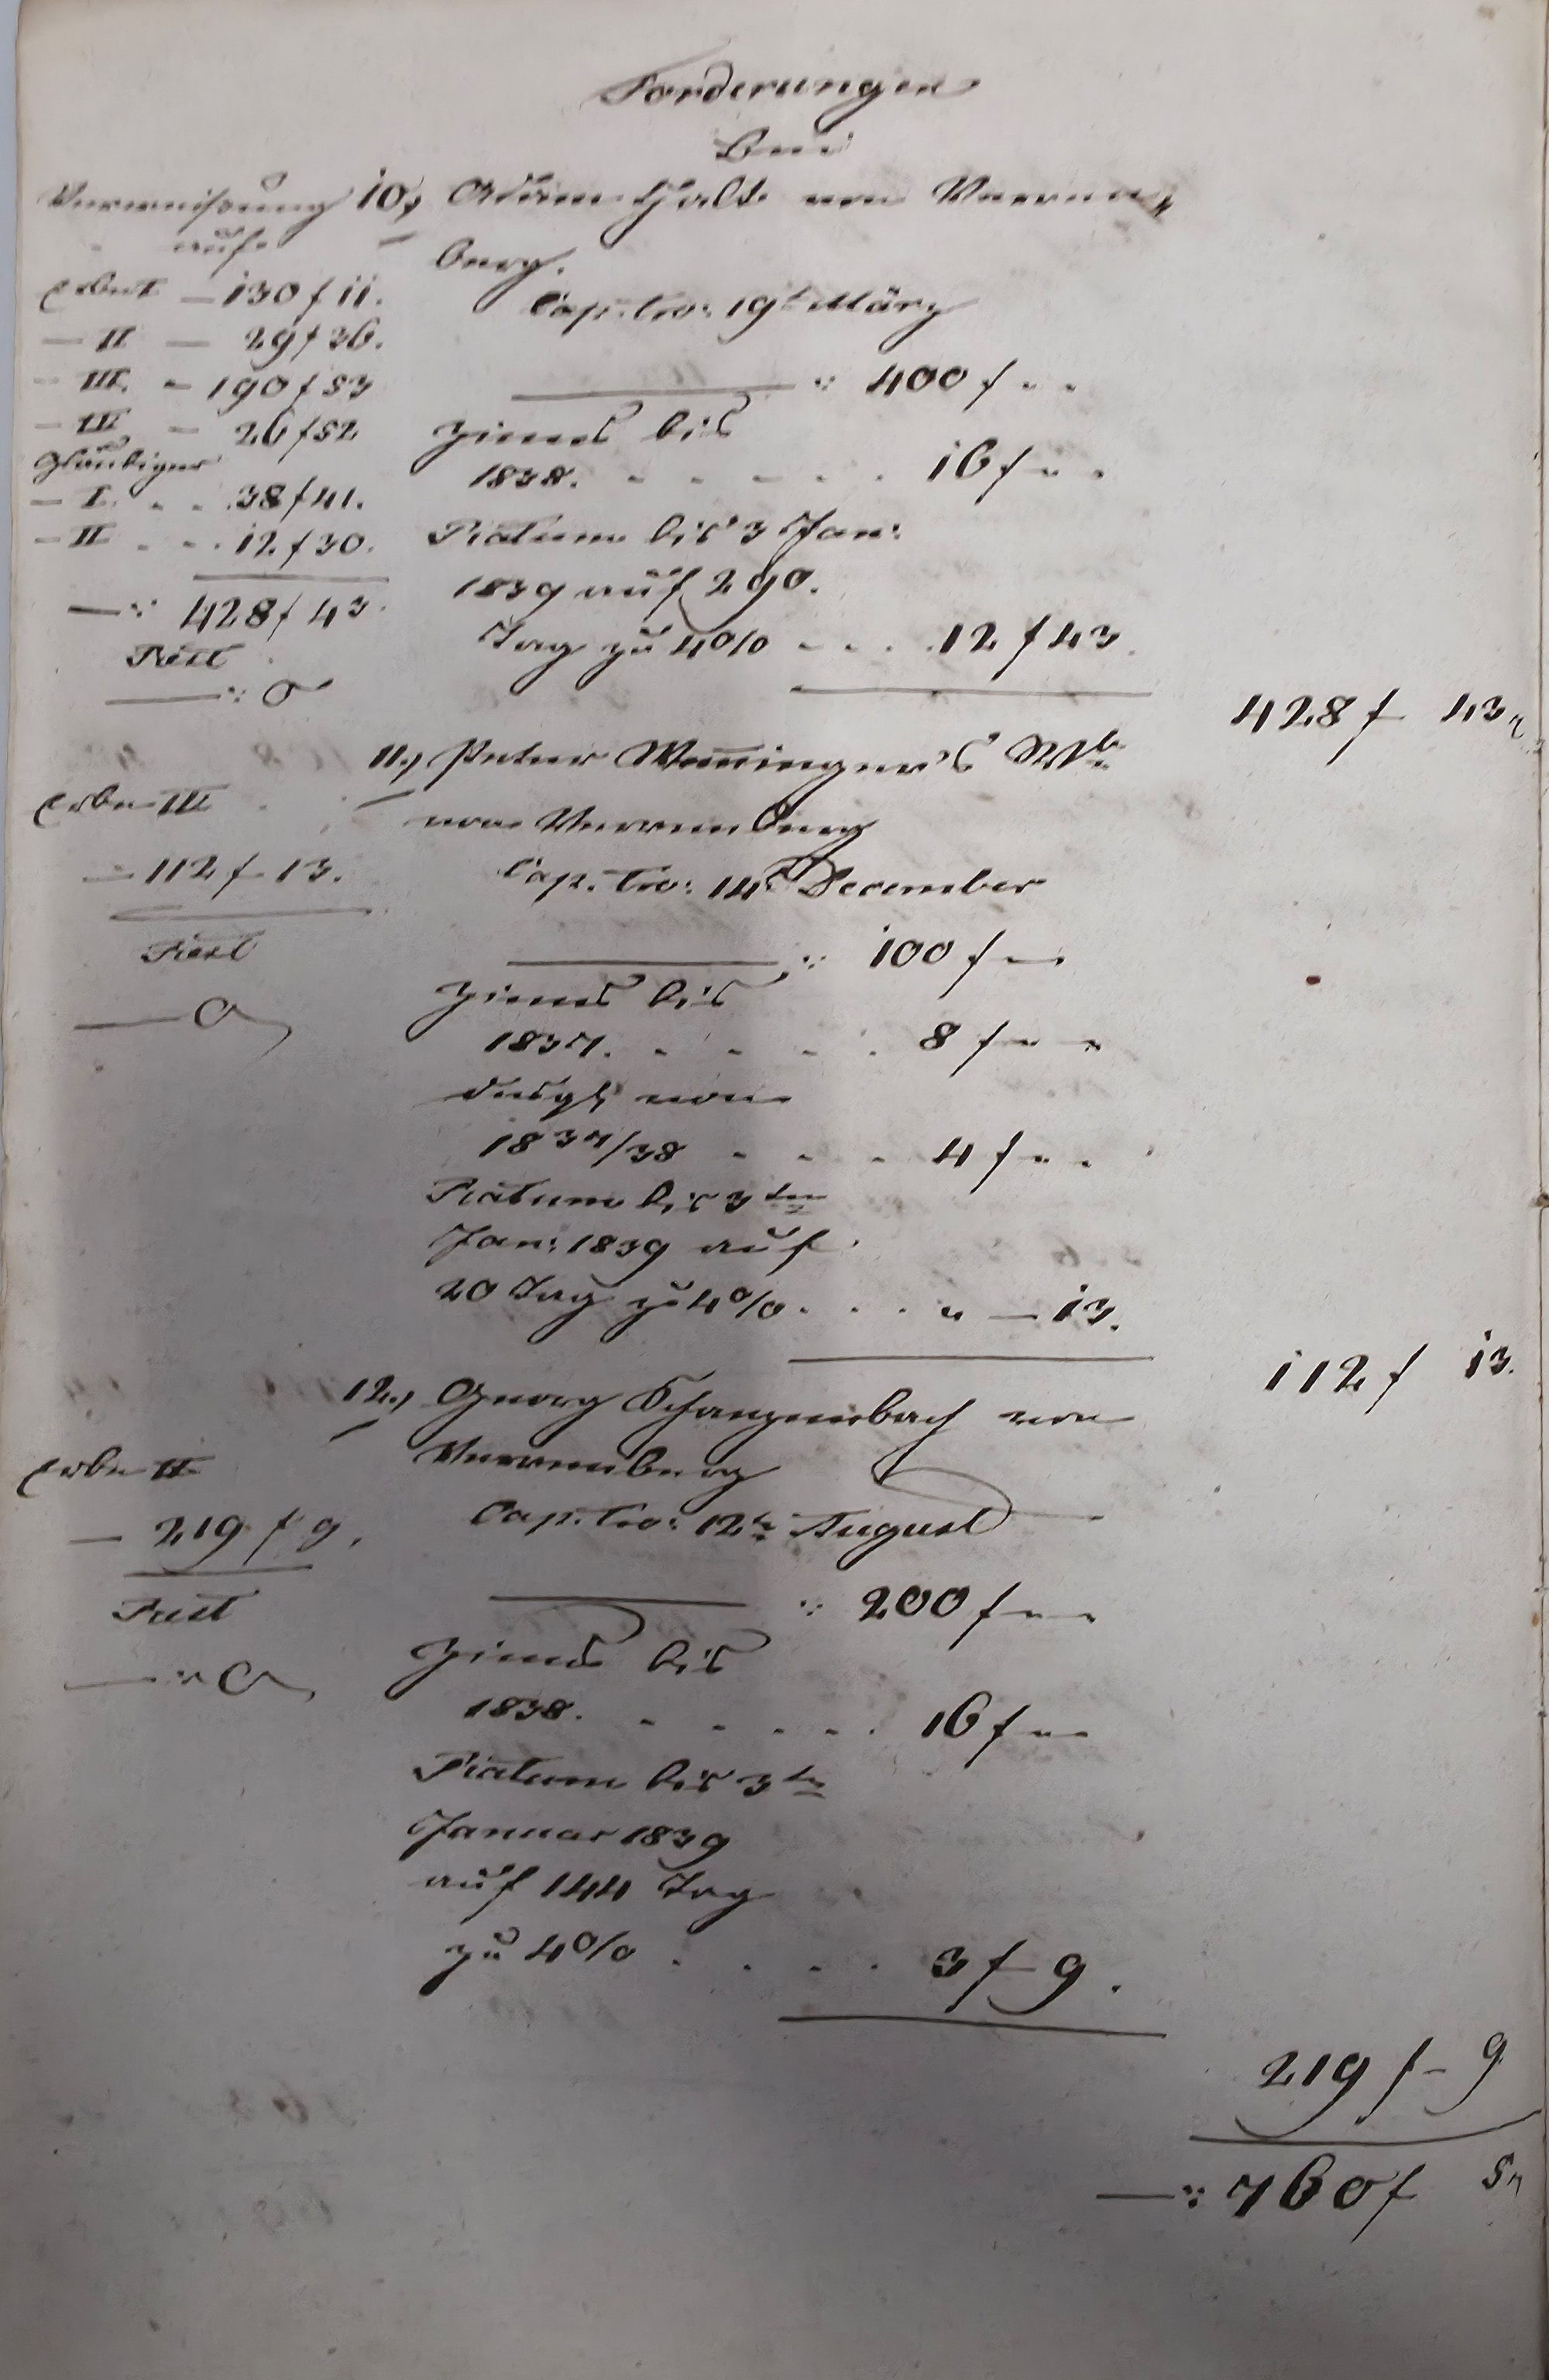 Forderungen
bei
Verweisung
auf
Erbe I — 130 f 11.
— II — 29 f 36.
— III. — 190 f 53
— IV — 26 f 52
Gläubiger
— I. . . 38 f 41.
— II . . . 12 f 30.
—: 428 f 43.
Rest
—: 0
10., Adam Hald von Verren-
berg.
Cap. tro: 19t März
—: 400 f - -
Zinns bis
1838. . . . . . 16 f - -
Ratum bis 3 Jan:
1839 auf 290.
Tag zu 4 % - . . . 12 f 43.
428 f 43.
Erbe III
— 112 f - 13.
Rest
— 0
11., Peter Weninger's Wb.
von Verrenberg
Cap. tro: 14t December
—: 100 f —
Zinns bis
1837. . . . . . 8 f - -
desgl. von
1837/38 . . . . 4 f - -
Ratum bis 3ten
Jan: 1839 auf
20 Tag zu 4 % . . . " — 13.
112 f 13.
Erbe II
— 219 f 9.
Rest
—: 0
12., Georg von
Verrenberg
Cap. tro: 12t August
—: 200 f - -
Zinns bis
1838. . . . . . 16 f - -
Ratum bis 3ten
Januar 1839
auf 144 Tag
zu 4 % . . . . 3 f - 9.
219 f - 9
—: 760 f 5